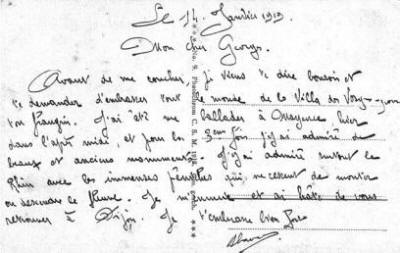 Le 14 Janvier 1919
Mon cher Georges.
Avant de me coucher je viens te dire bonsoir et
te demander d'embrasser tout le monde de la Villa des
ton frangin. J'ai été me ballader à Mayence hier
dans l'après midi, et pour la 3eme fois j'y ai admiré de
beaux et anciens monuments. J'y ai admiré surtout le
Rhin avec les immenses péniches qui ne cessent de monter
ou descendre le fleuve. Je m'ennuie et ai hâte de vous
retrouver à Dijon. Je t'embrasse bien fort